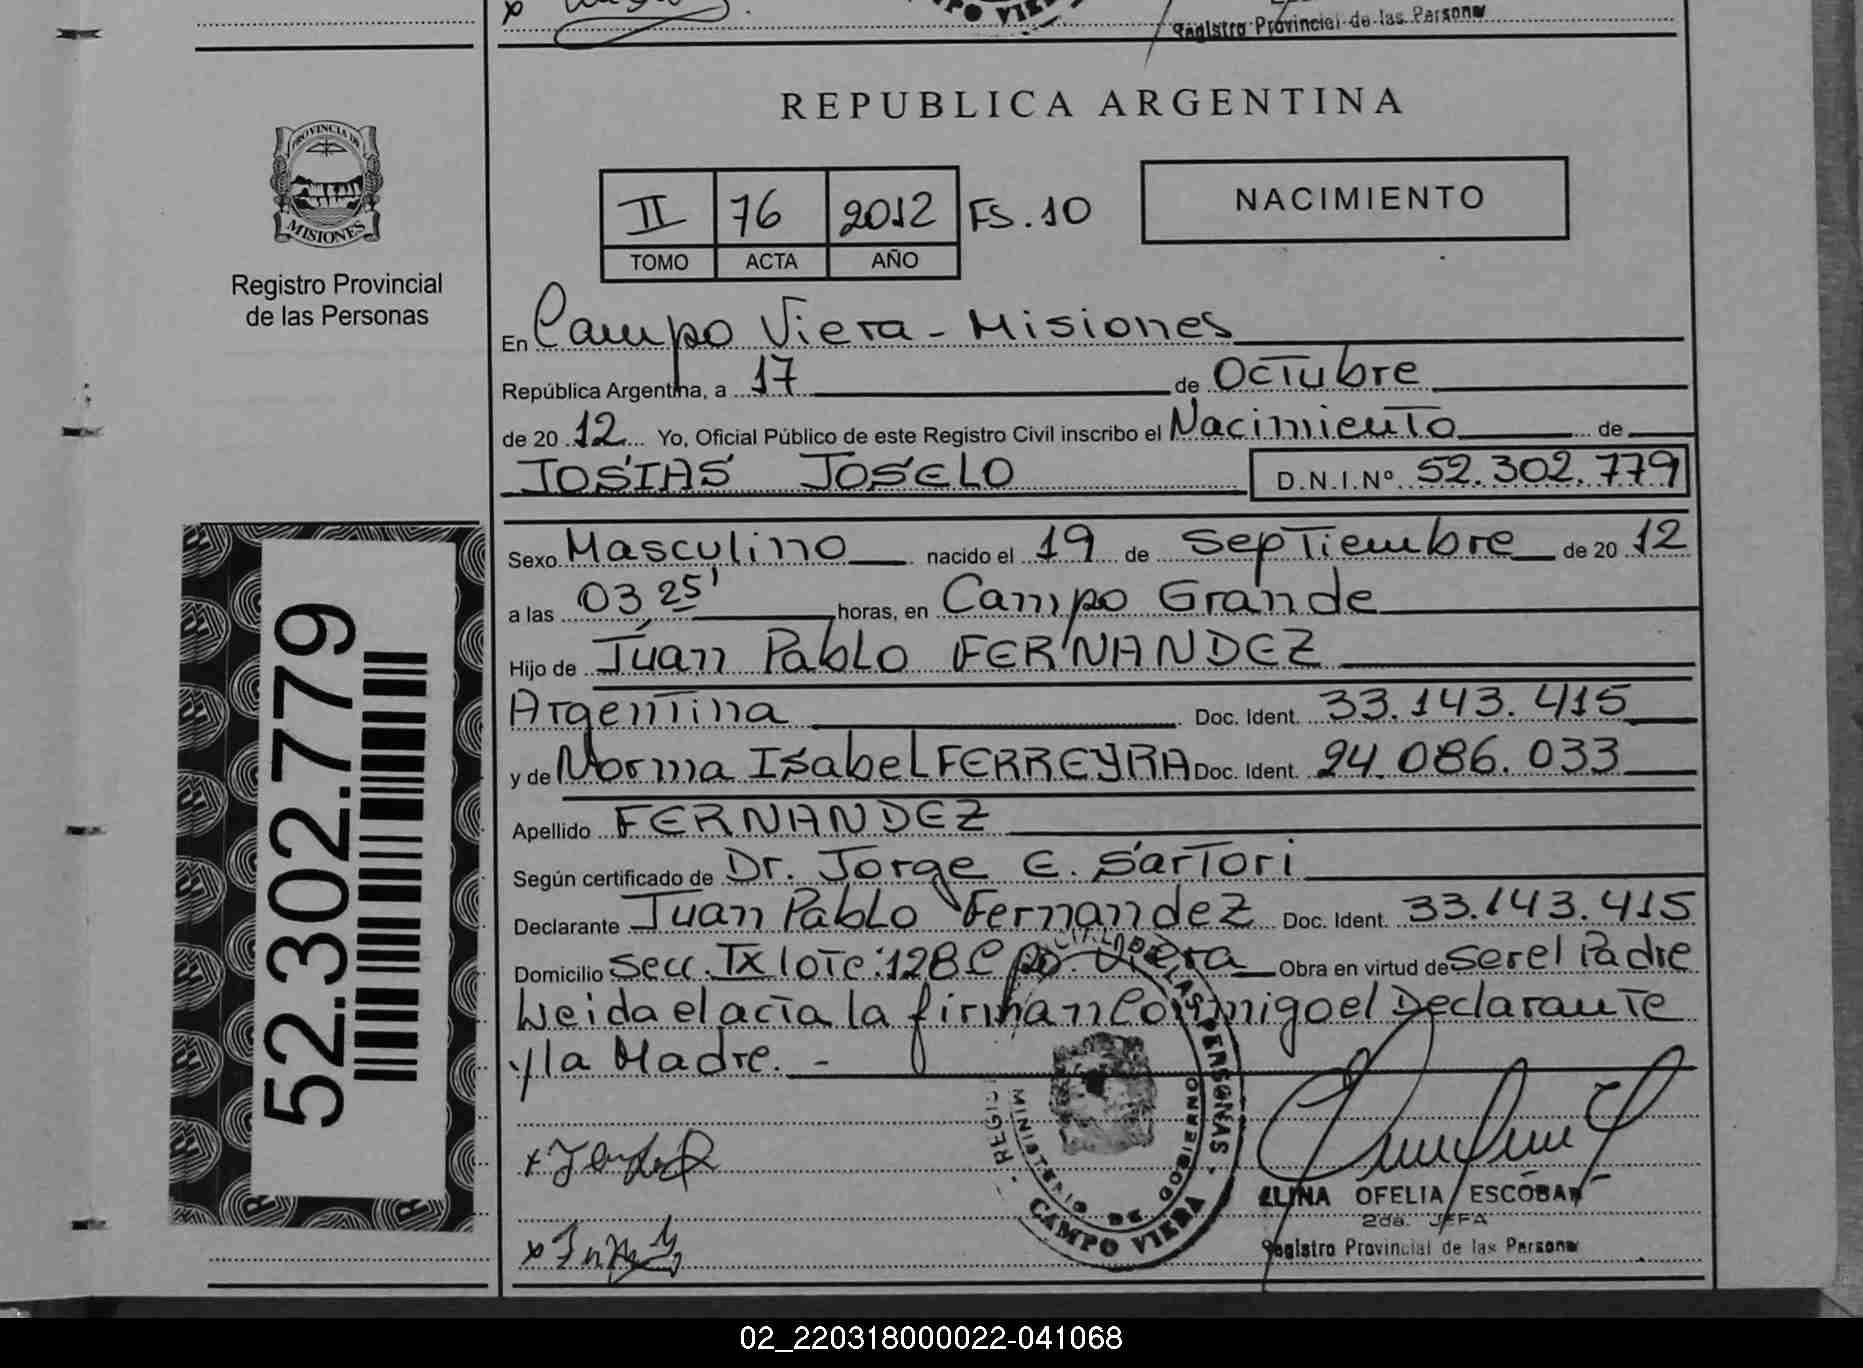 Registro Provincial de las Persona
REPUBLICA ARGENTINA
PROVINCIA DE
MISIONES
Registro Provincial
de las Personas
II 76 2012 FS. 10
TOMO ACTA AÑO
NACIMIENTO
En Campo Viera - Misiones
República Argentina, a 17 de Octubre
de 2012 Yo, Oficial Público de este Registro Civil inscribo el Nacimiento de
JOSIAS JOSELO D.N.I.Nº 52.302.779
Sexo Masculino nacido el 19 de Septiembre de 2012
a las 03 25' horas, en Campo Grande
Hijo de Juan Pablo FERNANDEZ
Argentina Doc. Ident. 33.143.415
y de Norma Isabel FERREYRA Doc. Ident. 94.086.033
Apellido FERNANDEZ
Según certificado de Dr. Jorge E. Sartori
Declarante Juan Pablo Fernandez Doc. Ident. 33.143.415
Domicilio Secc. IX lote: 128 Cpo. Viera Obra en virtud de ser el Padre
Leida el acta la firman Conmigo el Declarante
y la Madre. -
52.302.779
MINISTERIO DE GOBIERNO
CAMPO VIERA
ELINA OFELIA ESCOBAR
2da. JEFA
Registro Provincial de las Persona
02_220318000022-041068